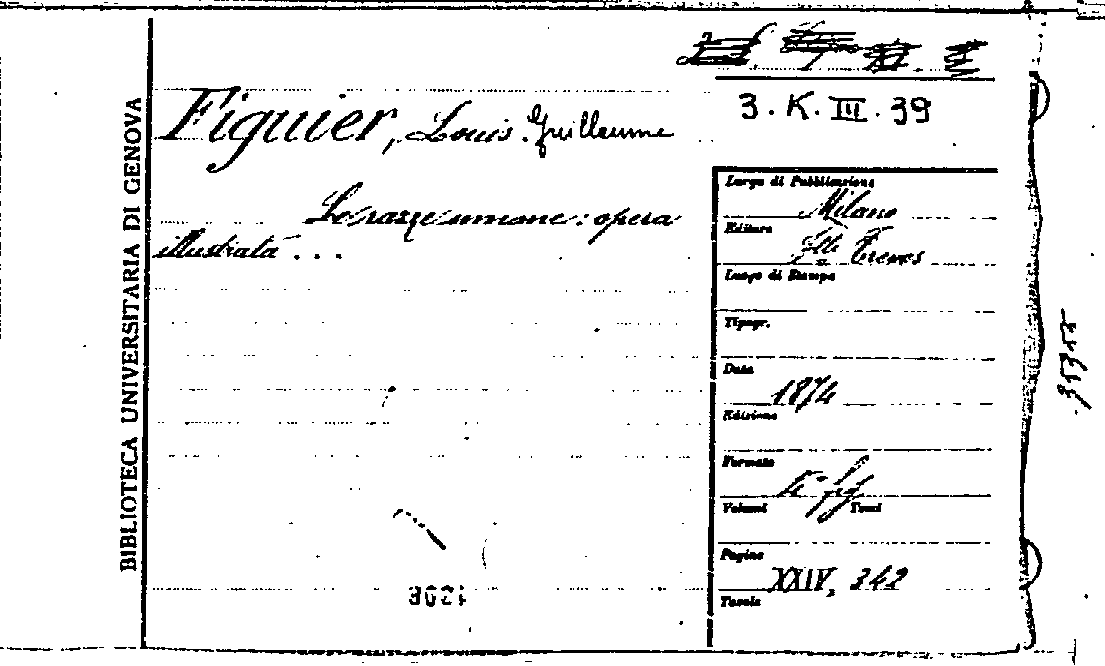 BIBLIOTECA UNIVERSITARIA DI GENOVA
3. K. III. 39
Figuier, Louis Guillaume
Le razze umane: opera
illustrata ...
Luogo di Pubblicazione
Milano
Editore
Flli Treves
Luogo di Stampa
Tipogr.
Data
1874
Edizione
Formato
4° fig
Volumi Tomi
Pagine
XXIV, 342
Tavole